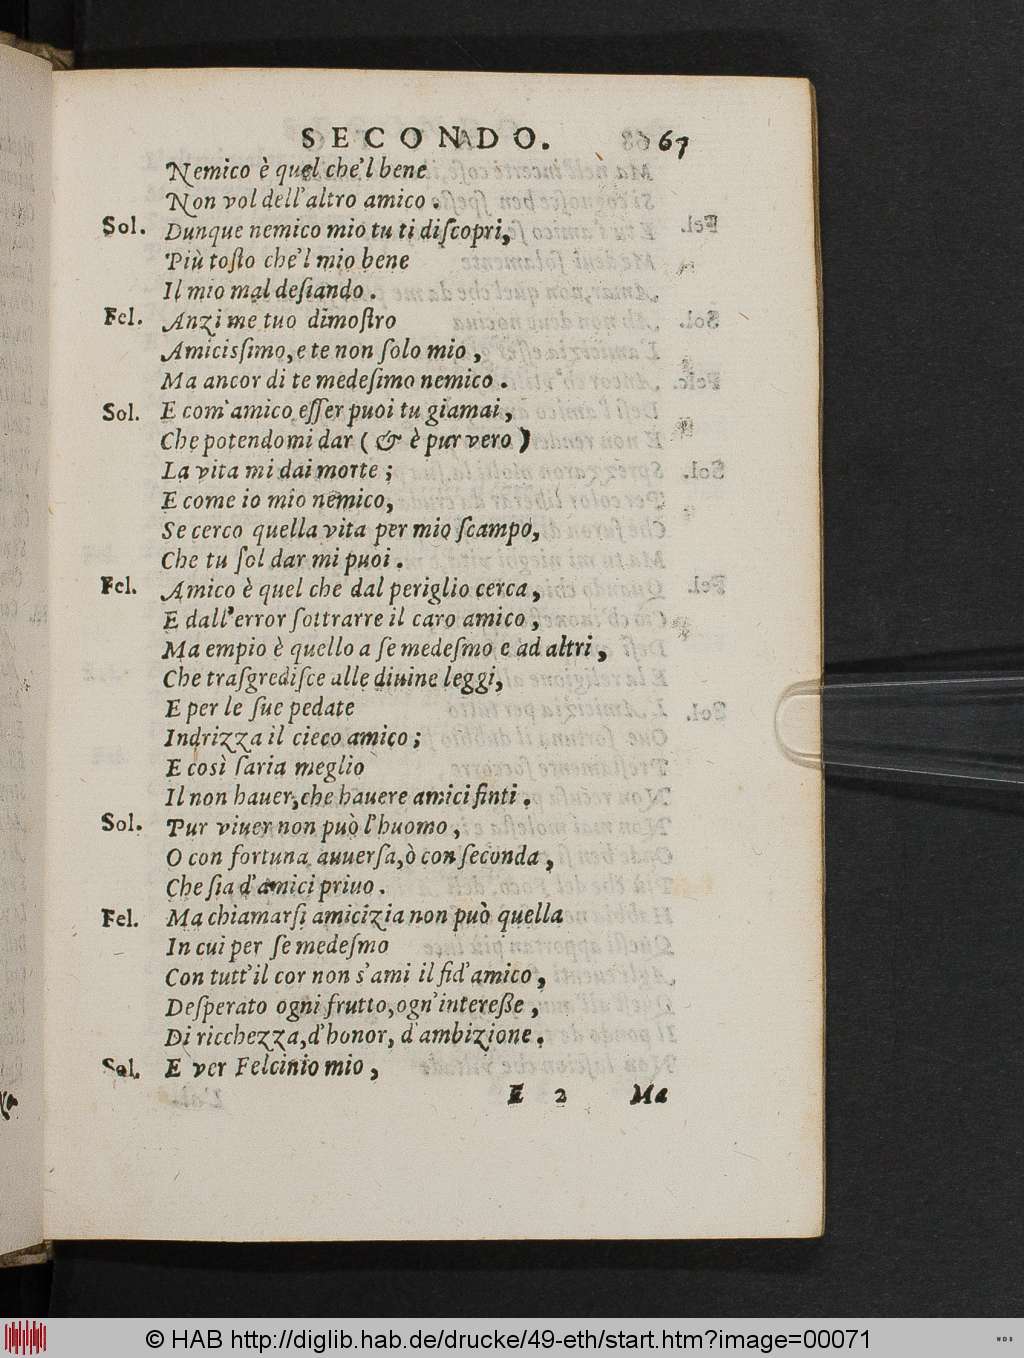 SECONDO. 67
Nemico è quel che'l bene
Non vol dell'altro amico.
Sol. Dunque nemico mio tu ti diſcopri,
Più toſto che'l mio bene
Il mio mal deſiando.
Fel. Anzi me tuo dimoſtro
Amiciſſimo, e te non ſolo mio,
Ma ancor di te medeſimo nemico.
Sol. E com'amico eſſer puoi tu giamai,
Che potendomi dar (& è pur vero)
La vita mi dai morte;
E come io mio nemico,
Se cerco quella vita per mio ſcampo,
Che tu ſol dar mi puoi.
Fel. Amico è quel che dal periglio cerca,
E dall'error ſottrarre il caro amico,
Ma empio è quello a ſe medeſmo e ad altri,
Che traſgrediſce alle diuine leggi,
E per le ſue pedate
Indrizza il cieco amico;
E così ſaria meglio
Il non hauer, che hauere amici finti.
Sol. Pur viuer non può l'huomo,
O con fortuna auuerſa, ò con ſeconda,
Che ſia d'amici priuo.
Fel. Ma chiamarſi amicizia non può quella
In cui per ſe medeſmo
Con tutt'il cor non s'ami il fid'amico,
Deſperato ogni frutto, ogn'intereße,
Di ricchezza, d'honor, d'ambizione.
Sol. E ver Felcinio mio,
E 2 Ma
© HAB http://diglib.hab.de/drucke/49-eth/start.htm?image=00071